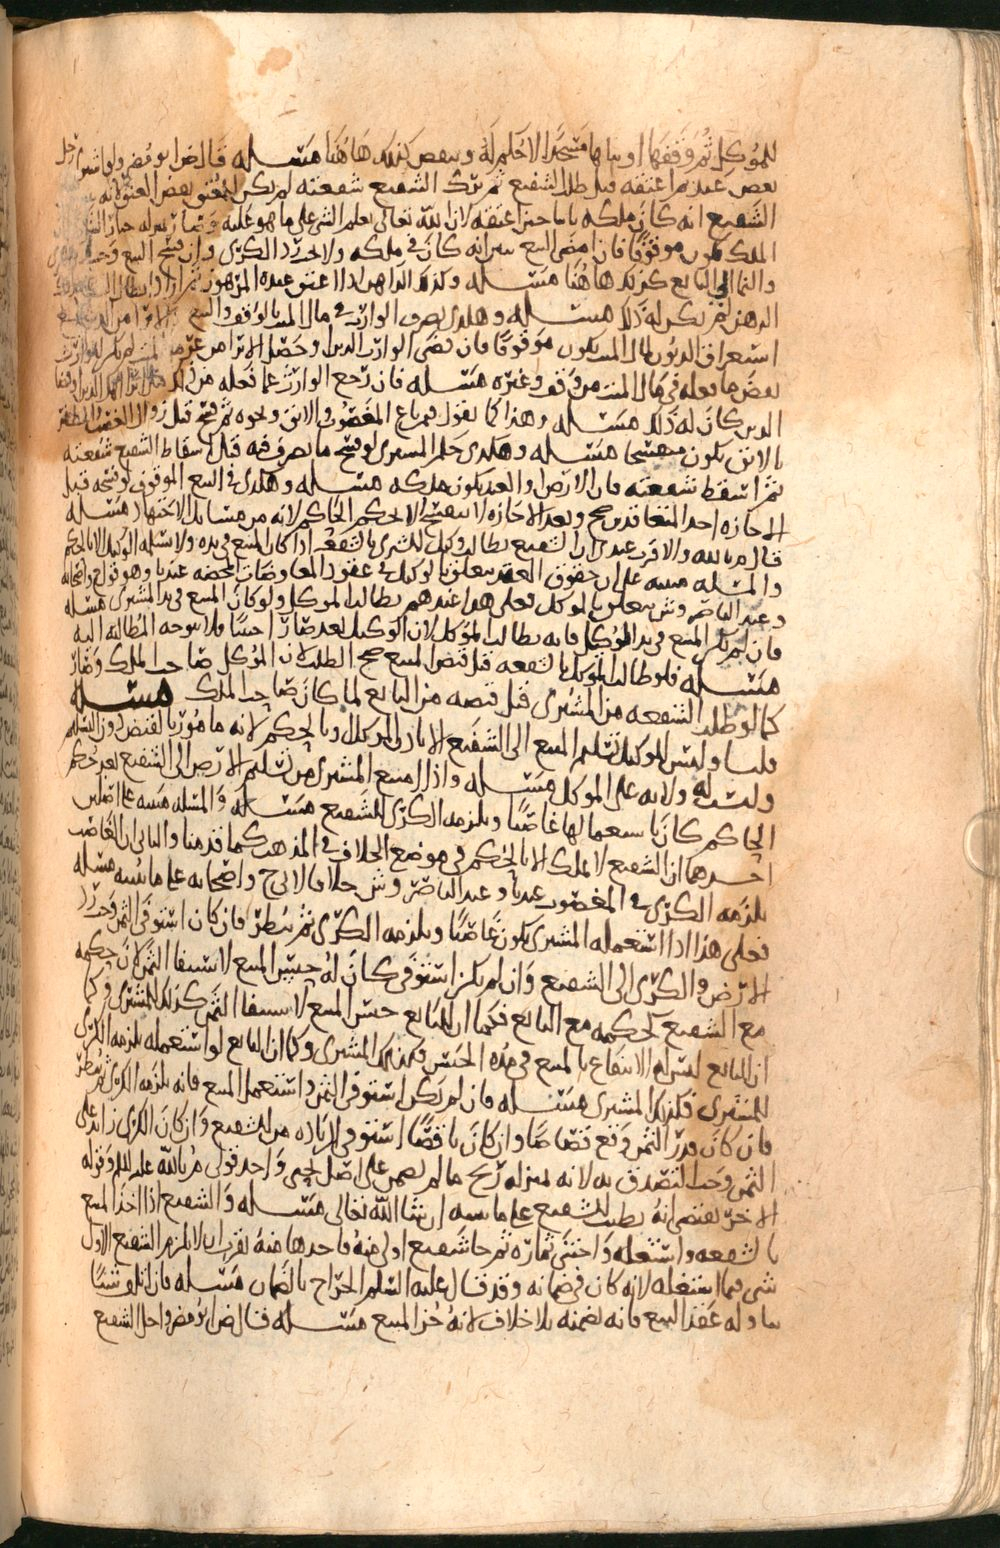 للموكل ثم وقفها او بناها مسجدا لا حكم له وينقض كذلك هاهنا مسئله قال ض ابو مضر ولو اشترى رجل
بعض عبد ثم اعتقه قبل طلب الشفيع ثم ترك الشفيع شفعته لم يكن للمعتق بعض العتق لانه
الشفيع انه كان ملكه باتا حين اعتقه لان الله تعالى يعلم الشي على ما هو عليه
الملك يكون موقوفا فان امضى البيع تبين انه كان في ملكه ولا يجب رد الكرى وان فسخ البيع وجب
والنما الى البايع كذلك هاهنا مسئله وكذلك الراهن اذا اعتق عبده المرهون ثم اراد ابطال
الرهن لم يكن له ذلك مسئله وهكذى تصرف الوارث في مال الميت بالوقف والبيع
استغراق الديون لمال الميت يكون موقوفا فان قضى الوارث الدين او حصل الابرا من غرما الميت لم يكن للوارث
نقض ما فعله في مال الميت من وقف وغيره مسئله فان رجع الوارث عما فعله من قبل
الدين كان له ذلك مسئله وهذا كما نقول فيمن باع المغصوب والابق ونحوه ثم فسخ قبل زوال الغصب
بالابق يكون منفسخا مسئله وهكذى حكم المشترى لو فسخ ما تصرف فيه قبل اسقاط الشفيع شفعته
ثم اسقط شفعته فان الارض والعبد يكون ملكه مسئله وهكذى في البيع الموقوف لو فسخه قبل
الاجازه احد المتعاقدين صح وبعد الاجازه لا ينفسخ الا بحكم الحاكم لانه من مسايل الاجتهاد مسئله
قال م بالله والاقرب عندى ان الشفيع يطالب وكيل المشترى بالشفعه اذا كان المبيع في يده ولا يسلمه الوكيل الا بالحكم
والمسئله مبنيه على ان حقوق العقد يتعلق بالوكيل في عقود المعاوضات المحضه عندنا وهو قول ح واصحابه
وعند الناصر وش يتعلق بالموكل فعلى هذا عندهم يطالب الموكل ولو كان المبيع في يد المشترى مسئله
فان لم يكن المبيع في يد الموكل فانه يطالب الموكل لان الوكيل بعد صار اجنبيا فلا يتوجه المطالبه اليه
مسئله فلو طالب الموكل بالشفعه قبل قبض المبيع صح الطلب لان الموكل صاحب الملك وصار
كما لو طلب الشفعه من المشترى قبل قبضه من البايع لما كان صاحب الملك مسئله
قلنا وليس للوكيل تسليم المبيع الى الشفيع الا باذن الموكل او بالحكم لانه مامور بالقبض دون التسليم
وليست له ولايه على الموكل مسئله واذا امتنع المشترى من تسليم الارض الى الشفيع بعد حكم
الحاكم كان باستعمالها غاصبا ويلزمه الكرى للشفيع مسئله والمسئله مبنيه على اصلين
احدهما ان الشفيع لا يملك الا بالحكم في موضع الخلاف في المذهب كما قدمنا والثاني ان الغاصب
يلزمه الكرى في المغصوب عندنا وعند الناصر وش خلافا لابي ح واصحابه على ما نبينه مسئله
فعلى هذا اذا استعمله المشترى يكون غاصبا ويلزمه الكرى ثم ينظر فان كان استوفى الثمن وجب رد
الارض والكرى الى الشفيع وان لم يكن استوفى كان له حبس المبيع لاستيفا الثمن لان حكمه
مع الشفيع كحكمه مع البايع فكما ان للبايع حبس المبيع لاستيفا الثمن كذلك للمشترى وكما
ان البايع ليس له الانتفاع بالمبيع في مده الحبس فكذلك المشترى وكما ان البايع لو استعمله يلزمه الكرى
للمشترى فكذلك المشترى مسئله فان لم يكن استوفى الثمن واستعمل المبيع فانه يلزمه الكرى ثم ينظر
فان كان قدر الثمن وقع قصاصا وان كان ناقصا استوفى الزياده من الشفيع وان كان الكرى زايد على
الثمن وجب التصدق به لانه بمنزله ربح ما لم يضمن على اصل يحيى واحد قولى م بالله عليه السلم وقوله
الاخر يقتضى انه يطيب للشفيع على ما نبينه ان شا الله تعالى مسئله والشفيع اذا اخذ المبيع
بالشفعه واستغله واجتنى ثماره ثم جا شفيع اولى منه فاخذها منه بقرب ان لا يلزم الشفيع الاول
شى فيما استغله لانه كان في ضمانه وقد قال عليه السلم الخراج بالضمان مسئله فان اتلف شيئا
تناوله عقد البيع فانه يضمنه بلا خلاف لانه جزء المبيع مسئله قال ض ابو مضر واحل الشفيع